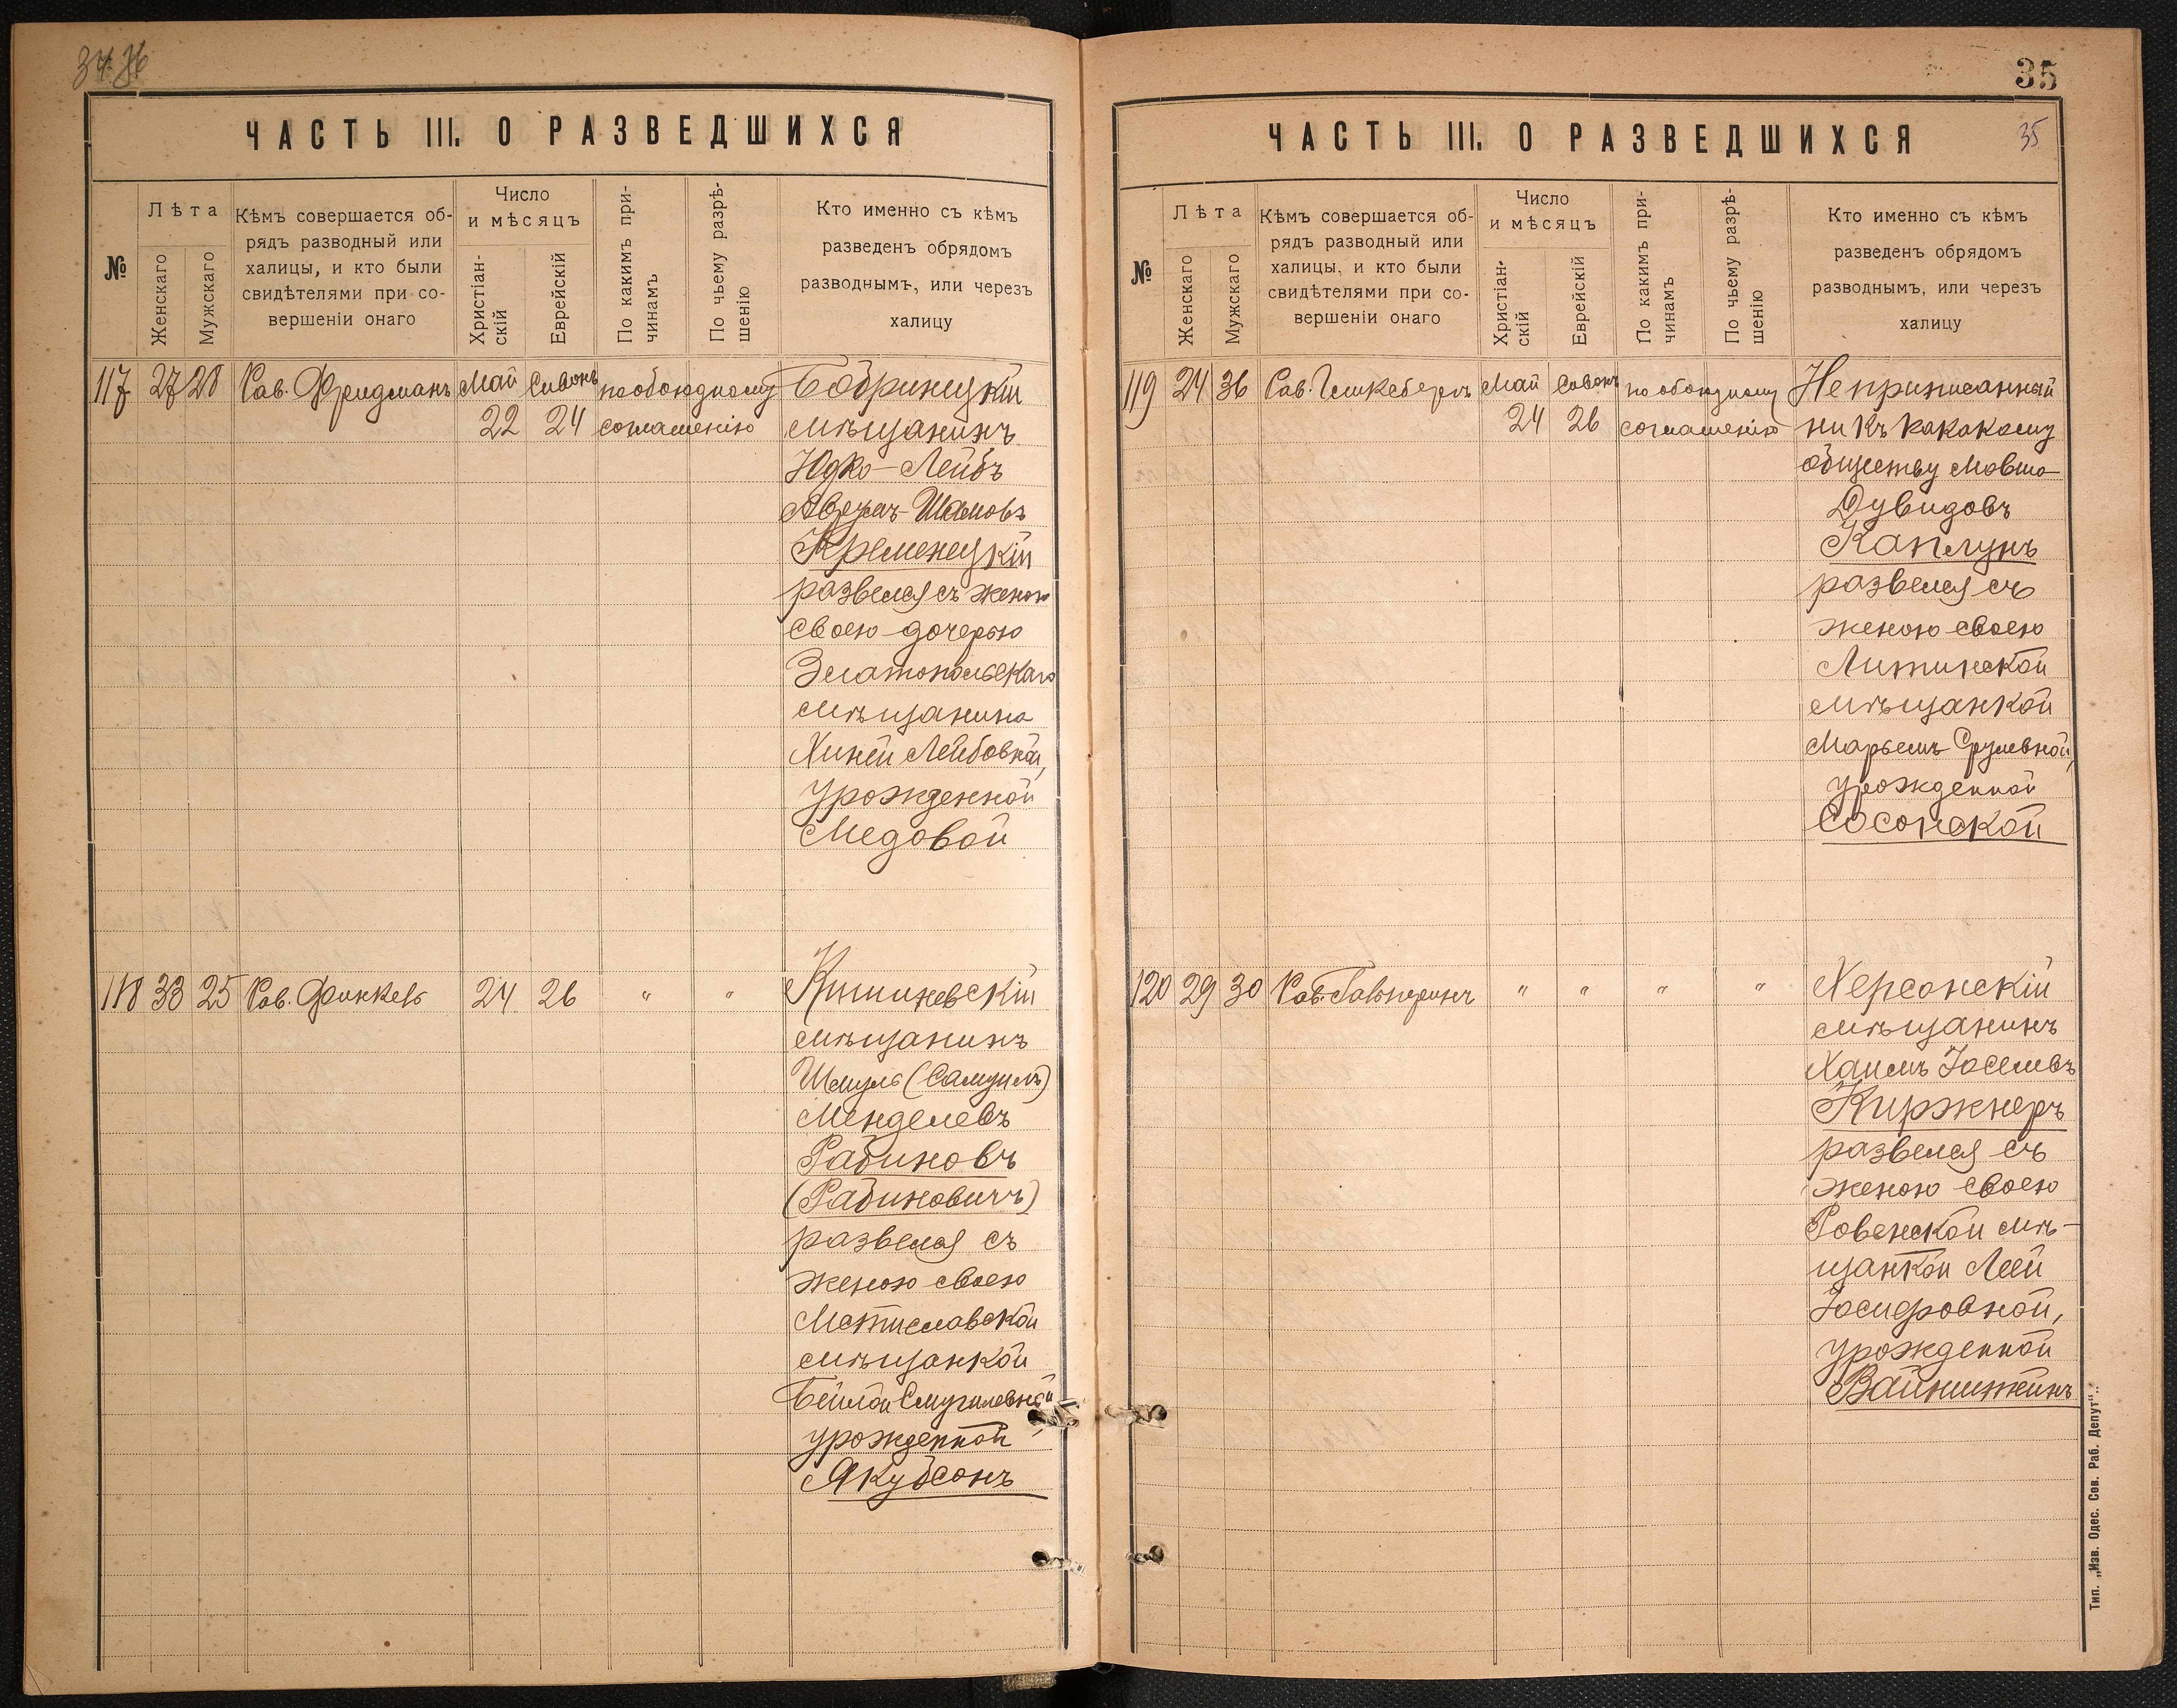 35
ЧАСТЬ III. О РАЗВЕДШИХСЯ
№
Лѣта
Женскаго
Мужскаго
Кѣмъ совершается об-
рядъ разводный или
халицы, и кто были
свидѣтелями при со-
вершеніи онаго
Число
и мѣсяцъ
Христіан-
скій
Еврейскій
По какимъ при-
чинамъ
По чьему разрѣ-
шенію
Кто именно съ кѣмъ
разведенъ обрядомъ
разводнымъ, или черезъ
халицу
117 27 28 Рав. Фридманъ Май Сивонъ по обоюдному
22 24 соглашенію
Бобринецкій
мѣщанинъ
Юдко-Лейбъ
Аврум-Шлемовъ
Кременецкій
развелся съ женою
своею дочерью
Златопольскаго
мѣщанина
Хиней Лейбовной,
урожденной
Медовой
118 33 25 Рав. Финкель 24 26 " "
Кишиневскій
мѣщанинъ
Шмуль (Самуилъ)
Менделевъ
Рабиновъ
(Рабиновичъ)
развелся съ
женою своею
Мстиславской
мѣщанкой
Бейлой Смуилевной,
урожденной
Якубсонъ
35
ЧАСТЬ III. О РАЗВЕДШИХСЯ
№
Лѣта
Женскаго
Мужскаго
Кѣмъ совершается об-
рядъ разводный или
халицы, и кто были
свидѣтелями при со-
вершеніи онаго
Число
и мѣсяцъ
Христіан-
скій
Еврейскій
По какимъ при-
чинамъ
По чьему разрѣ-
шенію
Кто именно съ кѣмъ
разведенъ обрядомъ
разводнымъ, или черезъ
халицу
119 24 36 Рав. Май Сивонъ по обоюдному
24 26 соглашенію
Не приписанный
ни къ какакому
обществу Мовша
Дувидовъ
Каплунъ
развелся съ
женою своею
Литинской
мѣщанкой
Марьемъ Срулевной,
урожденной
Сосонской
120 29 30 Рав. Гальперинъ " " " "
Херсонскій
мѣщанинъ
Хаимъ Іоселевъ
Киржнеръ
развелся съ
женою своею
Ровенской мѣ-
щанкой Леей
Іосифовной,
урожденной
Вайншткинъ
Тип. „Изв. Одес. Сов. Раб. Депут“.